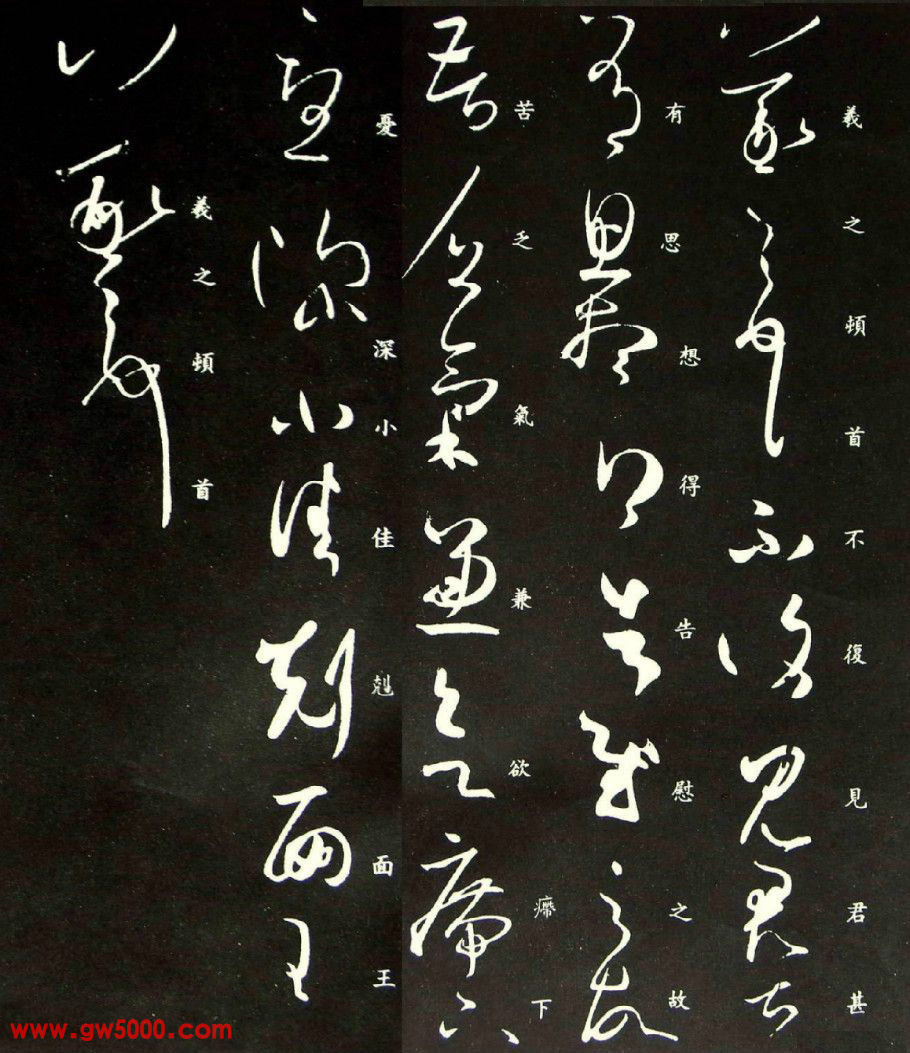 羲之頓首不復見君甚
有思想得告慰之故
苦乏氣兼欲㿃下
憂深小佳剋面王
羲之頓首
www.gw5000.com